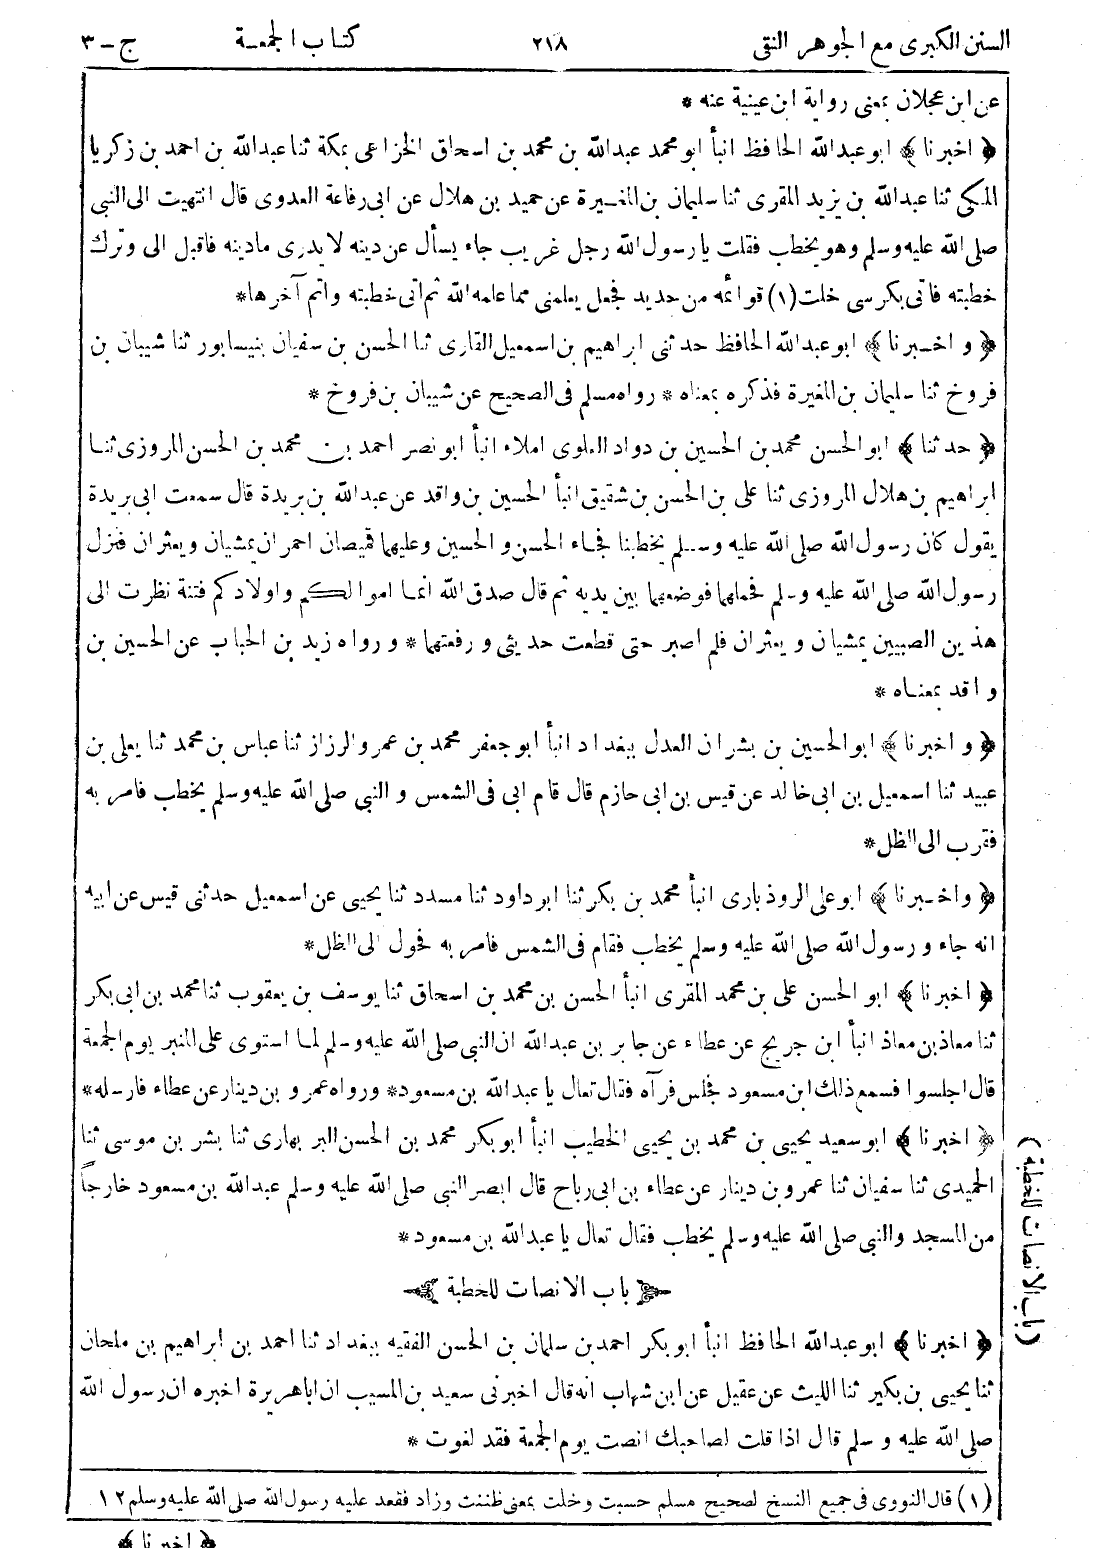 السنن الكبرى مع الجوهر النقى ٢١٨ كتاب الجمعة ج - ٣
عن ابن عجلان بمعنى رواية ابن عيينة عنه *
﴿ اخبرنا ﴾ ابو عبد الله الحافظ انبأ ابو محمد عبد الله بن محمد بن اسحاق الخزاعى بمكة ثنا عبد الله بن احمد بن زكريا
المكى ثنا عبد الله بن يزيد المقرى ثنا سليمان بن المغيرة عن حميد بن هلال عن ابى رفاعة العدوى قال انتهيت الى النبى
صلى الله عليه وسلم وهو يخطب فقلت يا رسول الله رجل غريب جاء يسأل عن دينه لا يدرى ما دينه فاقبل الى وترك
خطبته فاتى بكرسى خلت (١) قوائمه من حديد فجعل يعلمنى مما علمه الله ثم اتى خطبته واتم آخرها *
﴿ و اخـبرنا ﴾ ابو عبد الله الحافظ حدثنى ابراهيم بن اسمعيل القارى ثنا الحسن بن سفيان بنيسابور ثنا شيبان بن
فروخ ثنا سليمان بن المغيرة فذكره بمعناه * رواه مسلم فى الصحيح عن شيبان بن فروخ *
﴿ حدثنا ﴾ ابو الحسن محمد بن الحسين بن دواد العلوى املاء انبأ ابو نصر احمد بن محمد بن الحسن المروزى ثنا
ابراهيم بن هلال المروزى ثنا على بن الحسن بن شقيق انبأ الحسين بن واقد عن عبد الله بن بريدة قال سمعت ابى بريدة
يقول كان رسول الله صلى الله عليه وسلم يخطبنا فجاء الحسن و الحسين وعليهما قميصان احمران يمشيان ويعثران فنزل
رسول الله صلى الله عليه وسلم فحملهما فوضعهما بين يديه ثم قال صدق الله انما اموالكم واولادكم فتنة نظرت الى
هذين الصبيين يمشيان و يعثران فلم اصبر حتى قطعت حديثى و رفعتهما * و رواه زيد بن الحباب عن الحسين بن
واقد بمعناه *
﴿ و اخبرنا ﴾ ابو الحسين بن بشران العدل ببغداد انبأ ابو جعفر محمد بن عمرو الرزاز ثنا عباس بن محمد ثنا يعلى بن
عبيد ثنا اسمعيل بن ابى خالد عن قيس بن ابى حازم قال قام ابى فى الشمس و النبى صلى الله عليه وسلم يخطب فامر به
فقرب الى الظل *
﴿ واخـبرنا ﴾ ابو على الروذبارى انبأ محمد بن بكر ثنا ابو داود ثنا مسدد ثنا يحيى عن اسمعيل حدثنى قيس عن ابيه
انه جاء و رسول الله صلى الله عليه وسلم يخطب فقام فى الشمس فامر به فحول الى الظل *
﴿ اخبرنا ﴾ ابو الحسن على بن محمد المقرى انبأ الحسن بن محمد بن اسحاق ثنا يوسف بن يعقوب ثنا محمد بن ابى بكر
ثنا معاذ بن معاذ انبأ ابن جريج عن عطاء عن جابر بن عبد الله ان النبى صلى الله عليه وسلم لما استوى على المنبر يوم الجمعة
قال اجلسوا فسمع ذلك ابن مسعود فجلس فرآه فقال تعال يا عبد الله بن مسعود * ورواه عمرو بن دينار عن عطاء فارسله *
﴿ اخبرنا ﴾ ابو سعيد يحيى بن محمد بن يحيى الخطيب انبأ ابو بكر محمد بن الحسن البر بهارى ثنا بشر بن موسى ثنا
الحميدى ثنا سفيان ثنا عمرو بن دينار عن عطاء بن ابى رباح قال ابصر النبى صلى الله عليه وسلم عبد الله بن مسعود خارجاً
من المسجد والنبى صلى الله عليه وسلم يخطب فقال تعال يا عبد الله بن مسعود *
باب الانصات للخطبة
(باب الانصات للخطبة)
﴿ اخبرنا ﴾ ابو عبد الله الحافظ انبأ ابو بكر احمد بن سلمان بن الحسن الفقيه ببغداد ثنا احمد بن ابراهيم بن ملحان
ثنا يحيى بن بكير ثنا الليث عن عقيل عن ابن شهاب انه قال اخبرنى سعيد بن المسيب ان اباهريرة اخبره ان رسول الله
صلى الله عليه و سلم قال اذا قلت لصاحبك انصت يوم الجمعة فقد لغوت *
(١) قال النووى فى جميع النسخ لصحيح مسلم حسبت وخلت بمعنى ظننت وزاد فقعد عليه رسول الله صلى الله عليه وسلم ١٢
﴿ اخبرنا ﴾